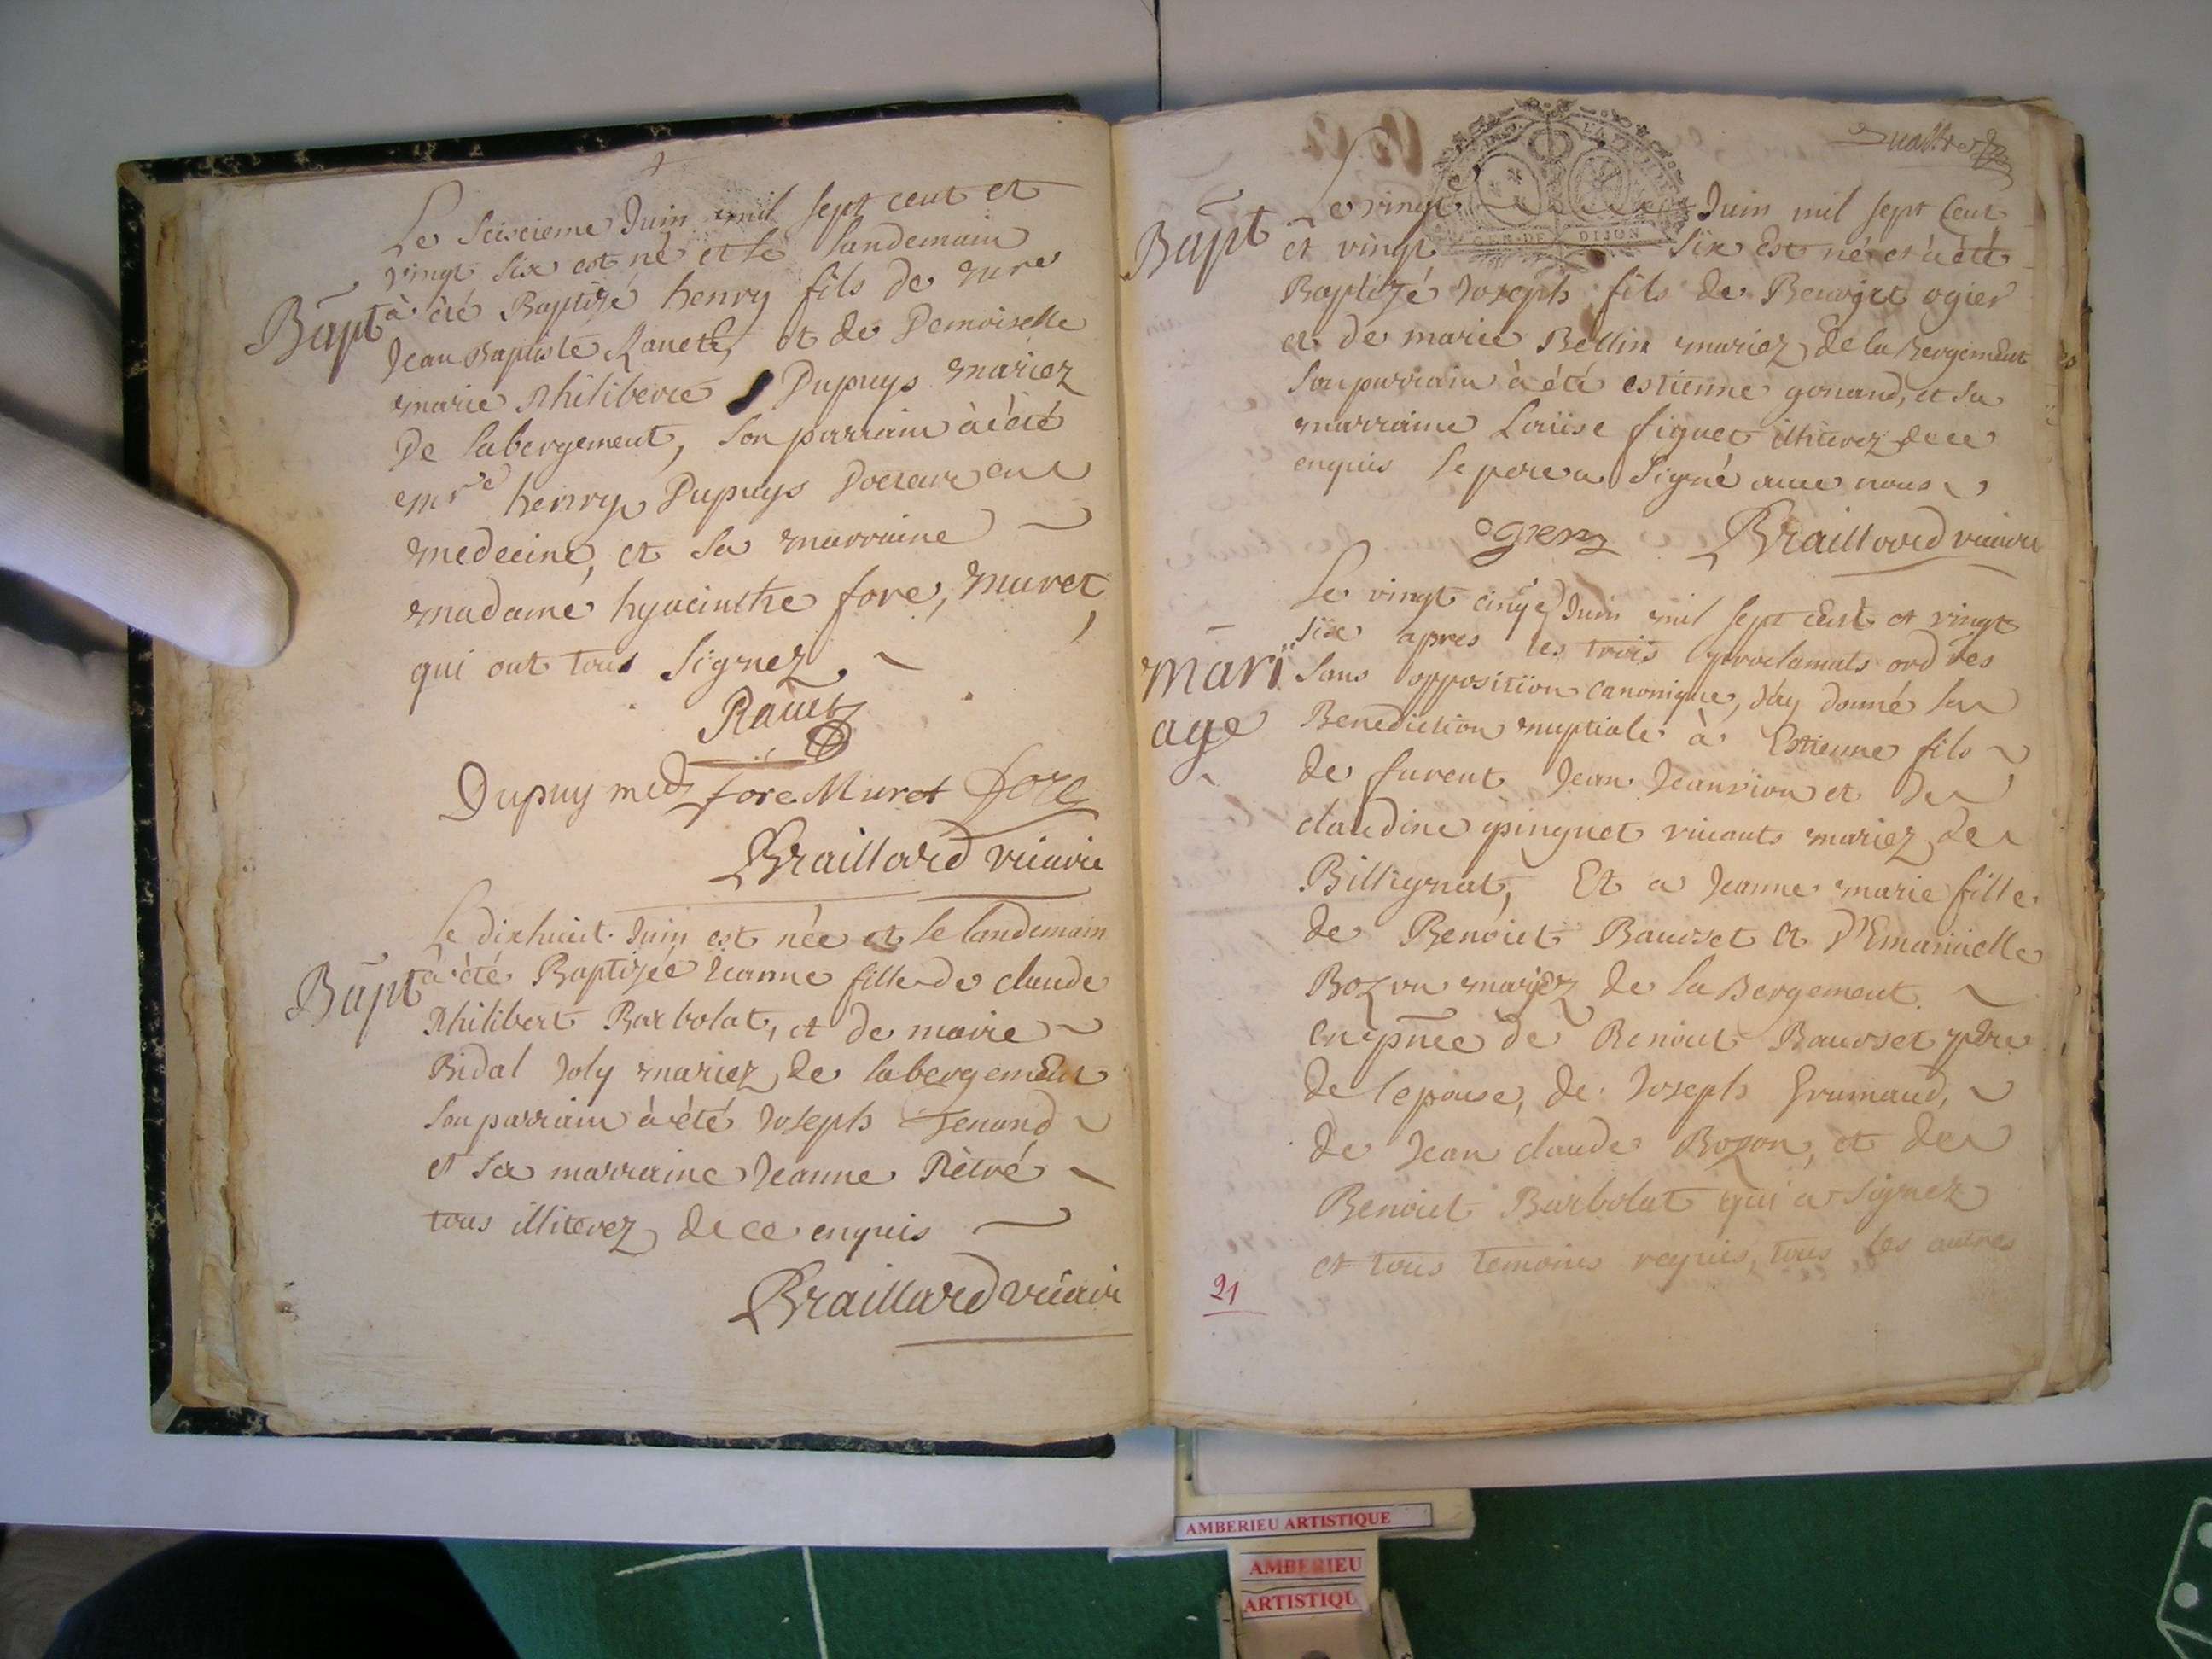 Le Seiseieme Juin mil sept cent et
vingt six est né et le landemain
Bapt à été Baptizé henry fils de mre
Jean Baptiste Rauet, et de Demoiselle
marie Philiberte Dupuys mariez
De labergement, son parrain à été
mre henry Dupuys Docteur en
medecine, et sa marraine
madame hyacinthe fore, muret,
qui ont tous signez
Rauet
Dupuy med fore Muret fore
Braillard vicaire
Le dixhuict Juin est née et le landemain
Bapt à été Baptizée Jeanne fille de claude
Philibert Barbolat, et de marie
Bidal Joly mariez de labergement
son parrain à été Joseph Tenand
et sa marraine Jeanne Pètré
tous illiterez de ce enquis
Braillard vicaire
Le vingt Juin mil sept Cent
GEN. DE DIJON
Bapt et vingt six Est né et à été
Baptizé Joseph fils de Benoict ogier
et de marie Bellin mariez de la Bergement
son parrain à été estienne gonand, et sa
marraine Louise figuet illiterez de ce
enquis le pere a signé avec nous
ogier Braillard vicaire
Le vingt cinqe Juin mil sept Cent et vingt
six apres les trois proclamats ordres
Mari sans opposition canonique, J'ay donné la
age Benediction nuptiale à Estienne fils
de furent Jean Jeanvion et de
claudine pinguet vivants mariez de
Billignat, Et a Jeanne marie fille
de Benoict Bausset et D'Emanuelle
Bozon mariez de la Bergement
En pnce de Benoict Bausset pere
de lepouse, de Joseph Grumaud,
de Jean claude Bozon, et de
Benoict Barbolat qui a signez
et tous temoins requis, tous les autres
21
AMBERIEU ARTISTIQUE
AMBERIEU
ARTISTIQU